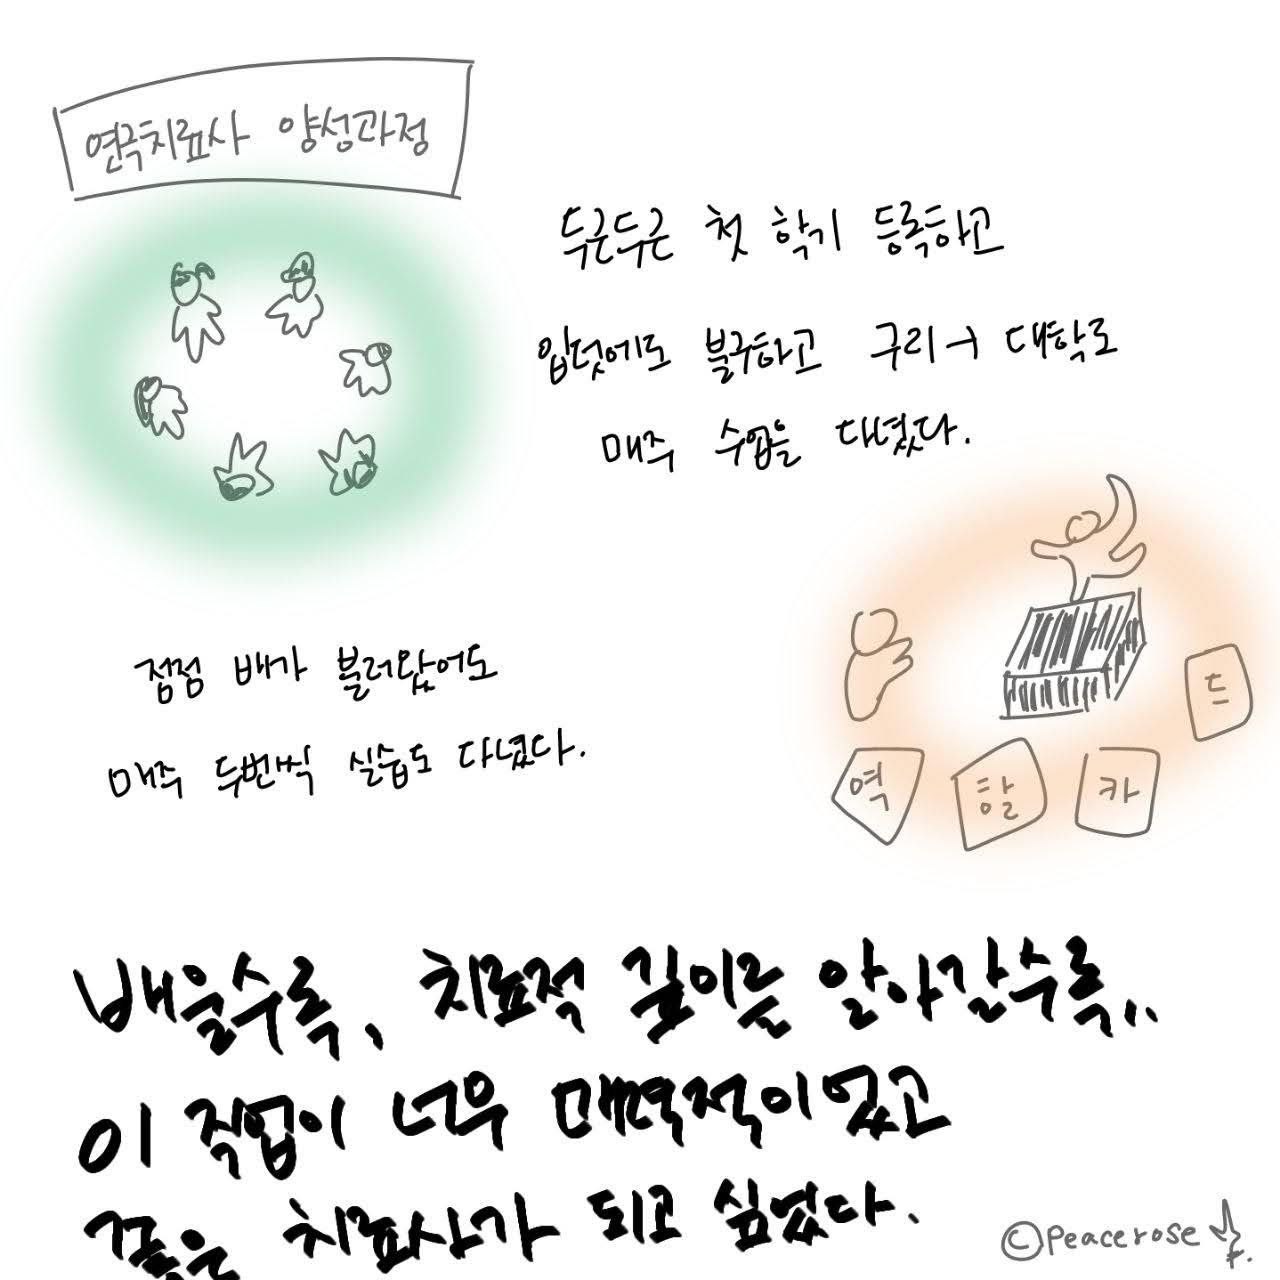 연극치료사 양성과정
두근두근 첫 학기 등록하고
입덧에도 불구하고 구리→대학로
매주 수업을 다녔다.
점점 배가 불러왔어도
매주 두번씩 실습도 다녔다.
역 할 카 드
배울수록, 치료적 길이를 알아갈수록,..
이 직업이 너무 매력적이었고
좋은 치료사가 되고 싶었다.
©Peacerose